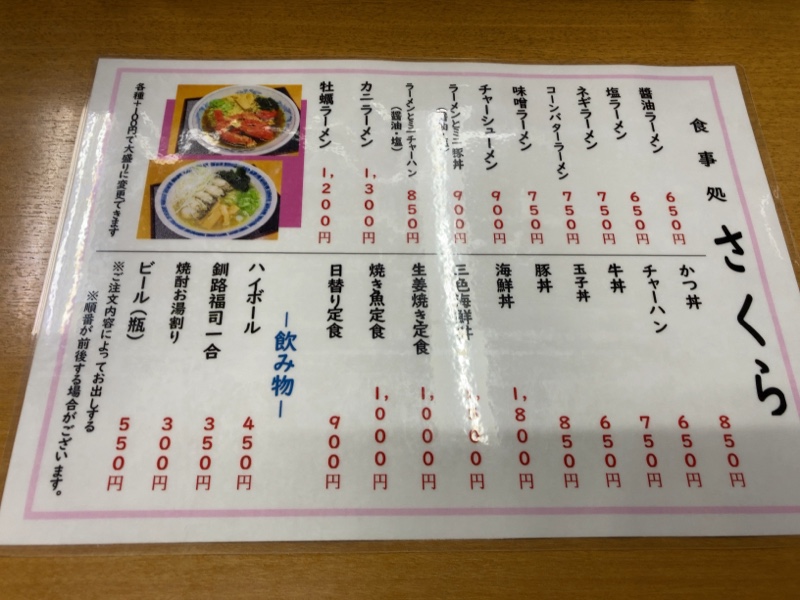 食事処 さくら
醬油ラーメン 650円
塩ラーメン 650円
ネギラーメン 750円
コーンバターラーメン 750円
味噌ラーメン 750円
チャーシューメン 900円
ラーメンとミニ豚丼 900円
ラーメンとミニチャーハン 850円
(醤油・塩)
カニラーメン 1,300円
牡蠣ラーメン 1,200円
各種+100円で大盛りに変更できます
かつ丼 850円
チャーハン 650円
牛丼 750円
玉子丼 650円
豚丼 850円
海鮮丼 1,800円
三色海鮮丼
生姜焼き定食 1,000円
焼き魚定食 1,000円
日替り定食 900円
ー飲み物ー
ハイボール 450円
釧路福司一合 350円
焼酎お湯割り 300円
ビール(瓶) 550円
※ご注文内容によってお出しする
※順番が前後する場合がございます。